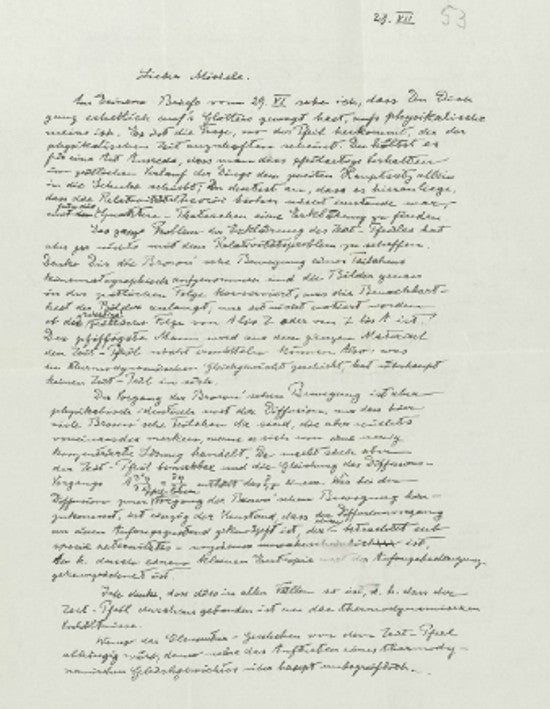 29. XII 53
Lieber Michele.
In Deinem Briefe vom 29. XI sehe ich, dass Du Dich
aufs physikalische
meine ich. Es ist die Frage, wo der Pfeil herkommt, der der
physikalischen Zeit scheint. Du hältst es
für eine Art dass man dies pfeilartige Verhalten
im Verlauf der Dinge dem zweiten Hauptsatz allein
in die Schuhe schiebt; Du deutest an, dass es hieran liege,
dass die Relativitätstheorie bisher nicht imstande war,
für die Quanten-Tatsachen eine Erklärung zu finden
Das ganze Problem der Erklärung des Zeit-Pfeiles hat
aber gar nichts mit dem Relativitätsproblem zu schaffen.
Denke Dir die Brown'sche Bewegung eines Teilchens
kinematographisch aufgenommen und die Bilder genau
in der zeitlichen Folge konserviert, was die Benachbart-
heit der Bilder anlangt, nur sei nicht notiert worden
ob die zeitliche Folge von A bis Z oder von Z bis A ist.
Der pfiffigste Mann wird aus dem ganzen Material
den Zeit-Pfeil nicht ermitteln können. Also: was
im thermodynamischen Gleichgewicht geschieht, hat überhaupt
keinen Zeit-Pfeil in sich.
Der Vorgang der Brown'schen Bewegung ist aber
physikalisch identisch mit der Diffusion, nur dass hier
viele Brown'sche Teilchen da sind, die aber nichts
voneinander merken, wenn es sich um eine wenig
konzentrierte Lösung handelt. Da macht sich aber
der Zeit-Pfeil bemerkbar und die Gleichung des Diffusions-
Vorgangs enthält das Was bei der
Diffusion zum Vorgang der Brown'schen Bewegung hin-
zukommt, ist einzig der Umstand, dass der Diffusionsvorgang
an einen Anfangszustand geknüpft ist, der betrachtet sub
specie aeternitatis ist,
d. h. durch eine kleinere Entropie
gekennzeichnet ist
Ich denke, dass dies in allen Fällen so ist, d. h. dass der
Zeit-Pfeil durchaus gebunden ist an die thermodynamischen
Verhältnisse.
Wenn das Elementar-Geschehen von dem Zeit-Pfeil
abhängig wäre, dann wäre das Auftreten eines thermody-
namischen Gleichgewichtes überhaupt unbegreiflich.